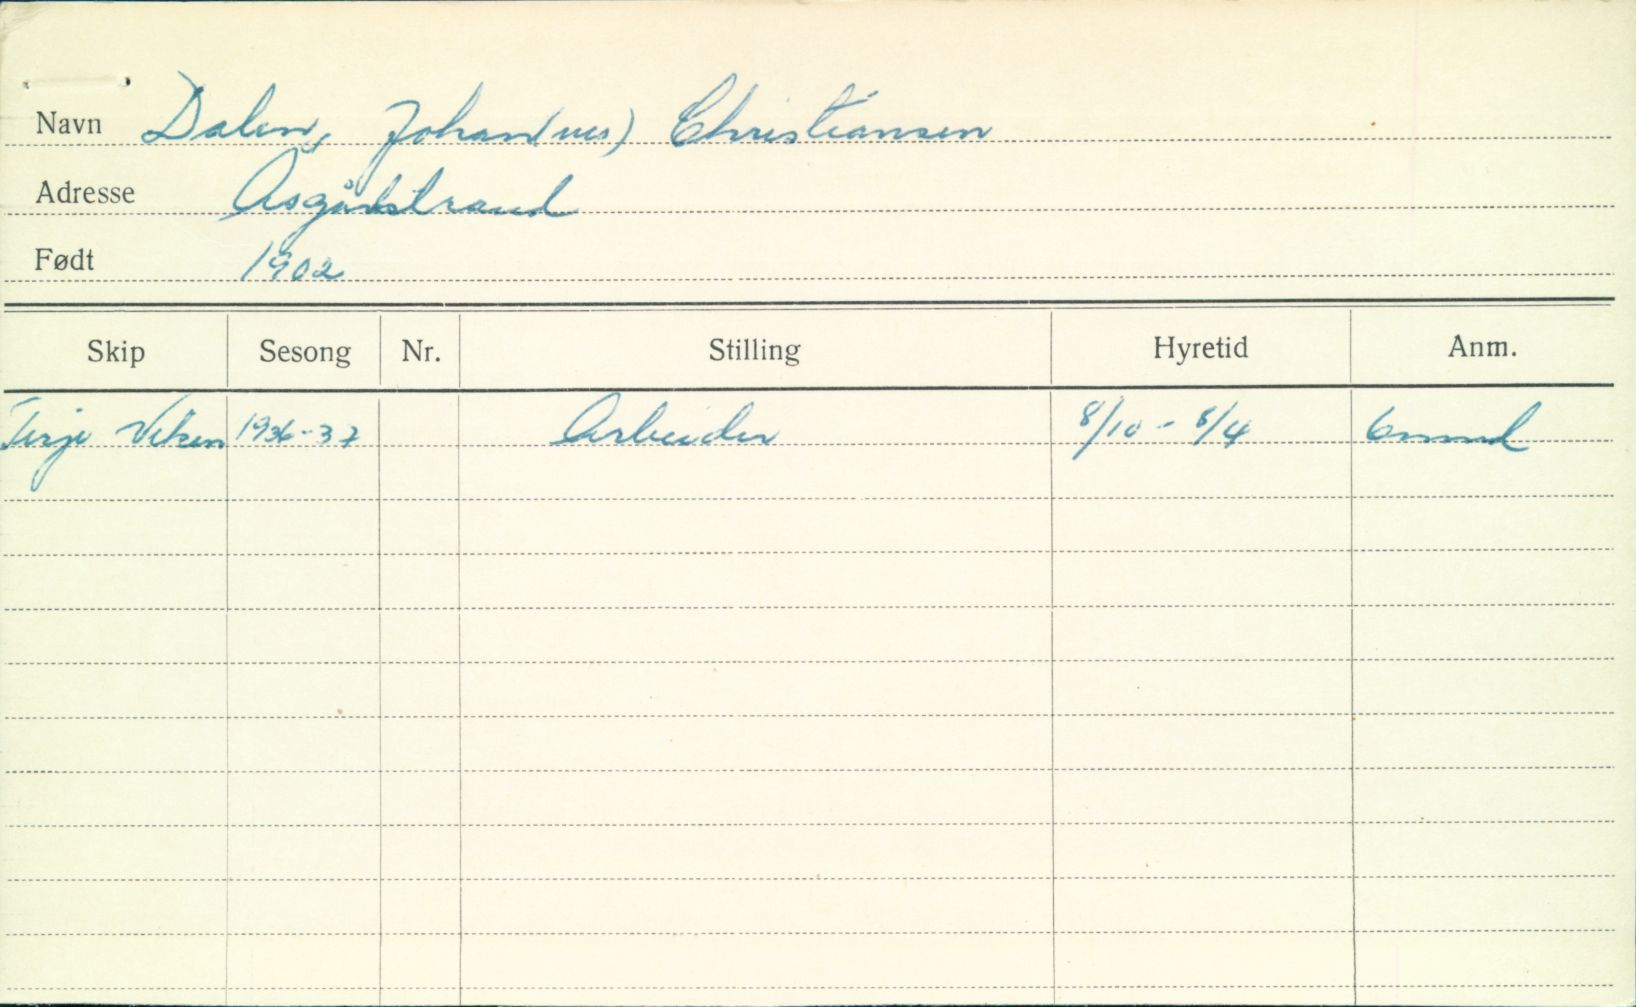 Navn Dalen, Johan(nes) Christiansen
Adresse Åsgårdstrand
Født 1902
Skip Sesong Nr. Stilling Hyretid Anm.
Terje Viken 1936-37 Arbeider 8/10 - 8/4